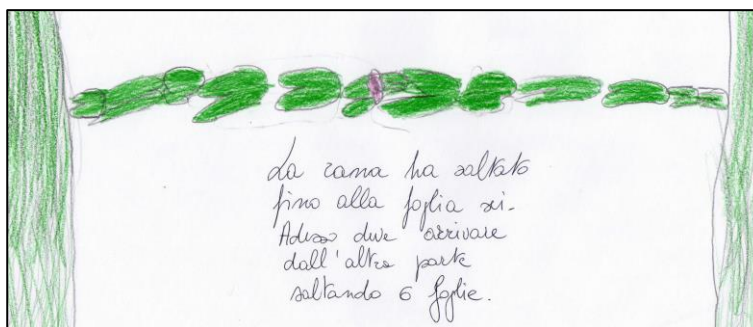 La rana ha saltato
fino alla foglia sei.
Adesso deve arrivare
dall'altra parte
saltando 6 foglie.